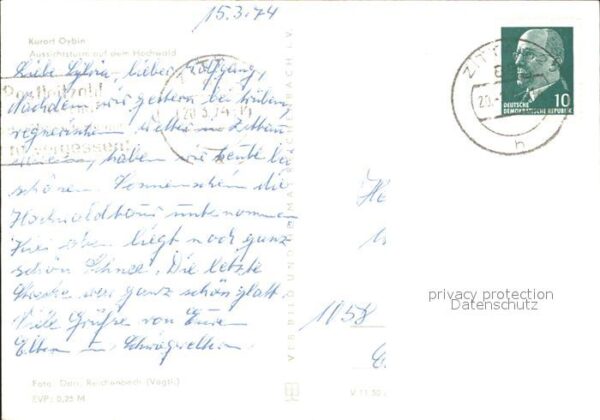 15.3.74
Kurort Oybin
Aussichtsturm auf dem Hochwald
Liebe Sylvia, lieber Wolfgang,
Nachdem wir gestern bei trüben,
regnerischen Wetter in Zittau
haben wir heute bei
schönen Sonnenschein die
Hochwaldtour unternommen
Hier oben liegt noch ganz
schön Schnee. Die letzte
Strecke war ganz schön glatt
Viele Grüße von Euren
Eltern u. Schwiegereltern.
Foto: Darr, Reichenbach (Vogtl.)
EVP: 0,25 M
Postleitzahl
vergessen!
20.3.74
VEB BILD UND HEIMAT REICHENBACH I. V.
V 11 50
ZITTAU
20.
h
DEUTSCHE
DEMOKRATISCHE REPUBLIK
10
1058
privacy protection
Datenschutz